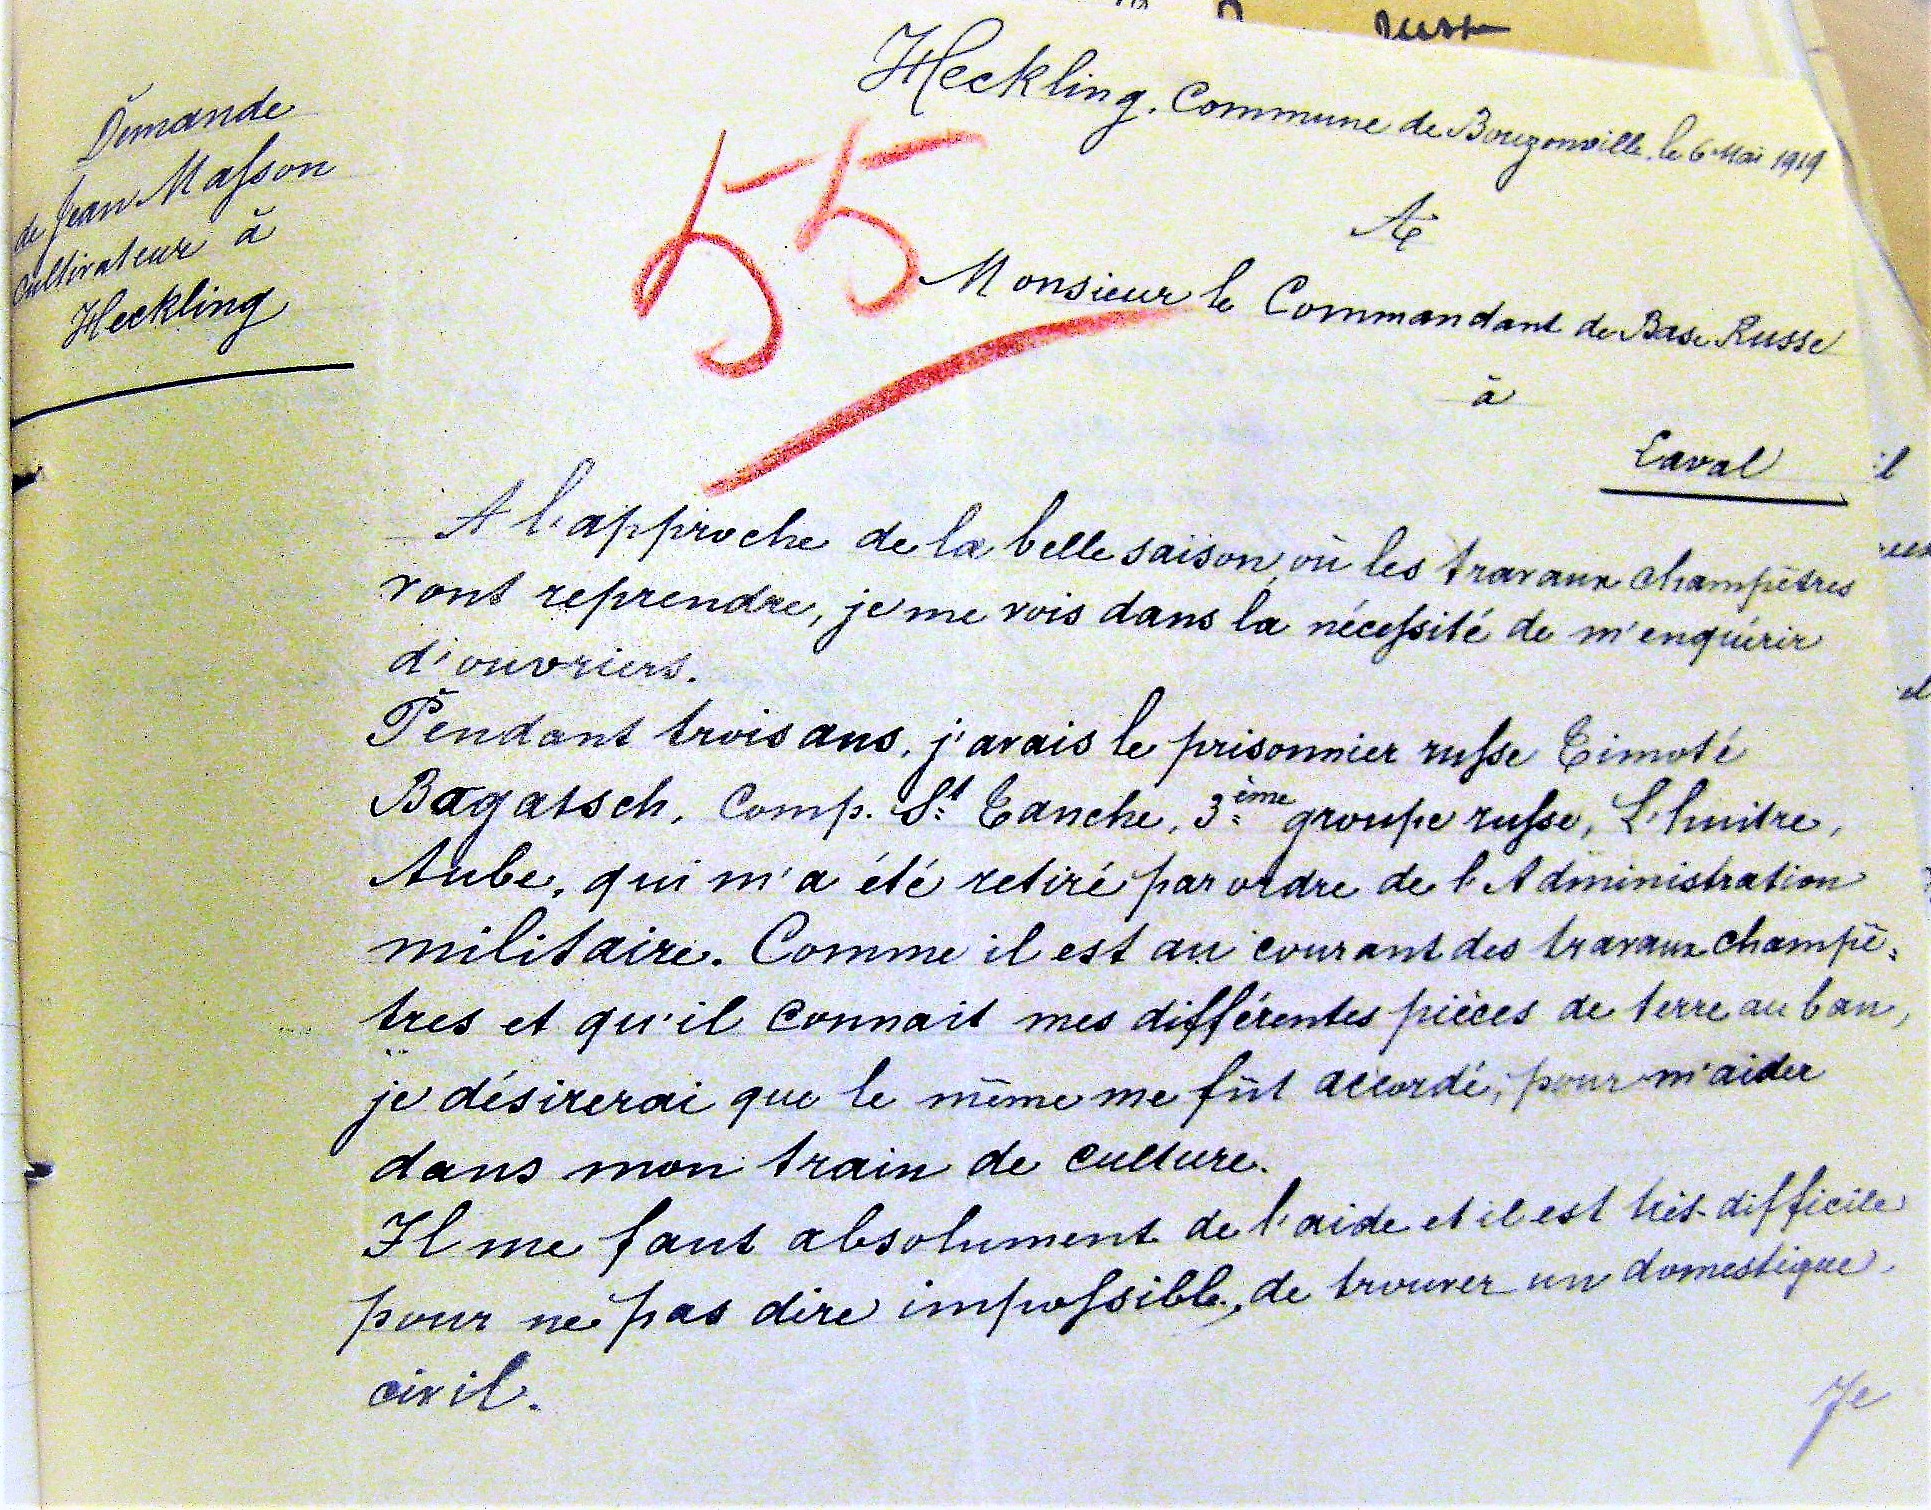 Demande
de Jean Masson
Cultivateur à
Heckling
Heckling, Commune de Bouzonville, le 6 Mai 1919
55
A
Monsieur le Commandant de Base Russe
à
Laval
A l'approche de la belle saison, où les travaux champêtres
vont reprendre, je me vois dans la nécessité de m'enquérir
d'ouvriers.
Pendant trois ans, j'avais le prisonnier russe Timoté
Bagatsch, Comp. St Tanche, 3ème groupe russe, L'huitre,
Aube, qui m'a été retiré par ordre de l'Administration
militaire. Comme il est au courant des travaux champê-
tres et qu'il connait mes différentes pièces de terre au ban,
je désirerai que le même me fût accordé, pour m'aider
dans mon train de culture.
Il me faut absolument de l'aide et il est très difficile
pour ne pas dire impossible, de trouver un domestique
civil.
Je